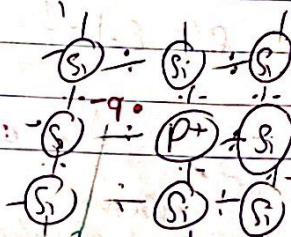 Si Si Si
-q
S P+ Si
Si Si Si